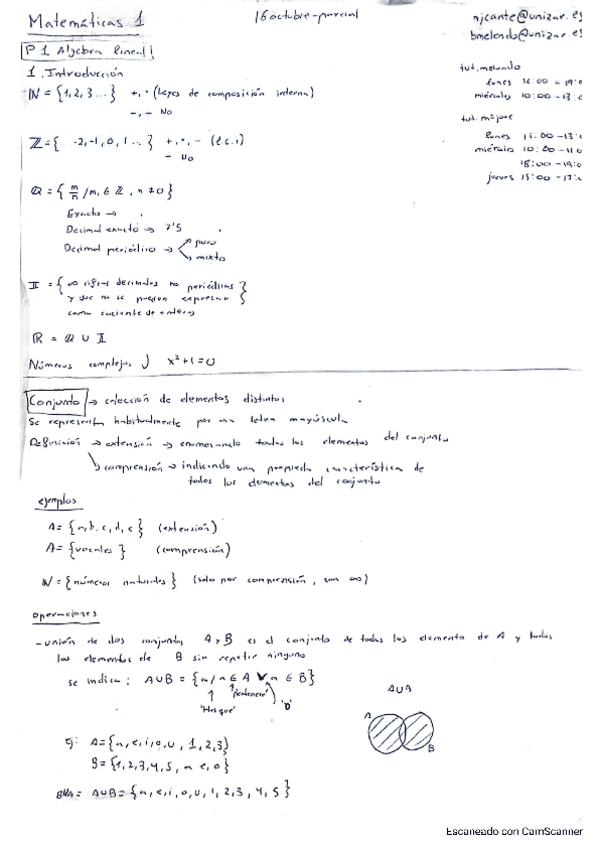 Matemáticas 1
16 octubre - parcial
njcante@unizar.es
bmelendo@unizar.es
P1 Algebra lineal
1. Introducción
tut. melendo
lunes 16:00 - 19:0
miércoles 10:00 - 13:0
ℕ = {1, 2, 3 ...} +, · (Leyes de composición interna)
-, ÷ No
lunes 11:00 - 13:0
miércoles 10:00 - 11:0
18:00 - 19:0
jueves 15:00 - 17:0
ℤ = { -2, -1, 0, 1 ...} +, ·, - (l.c.i)
÷ No
ℚ = { m/n / m, ∈ ℤ, n ≠ 0 }
Exacto →
Decimal exacto → 7'5
Decimal periódico → puro
mixto
𝕀 = { ∞ cifras decimales no periódicas
y que no se pueden expresar
como cociente de enteros }
ℝ = ℚ ∪ 𝕀
Números complejos x² + 1 = 0
Conjunto → colección de elementos distintos
Se representa habitualmente por una letra mayúscula
Definición → extensión → enumerando todos los elementos del conjunto
comprensión → indicando una propiedad característica de
todos los elementos del conjunto
ejemplos
A = {a, b, c, d, e} (extensión)
A = {vocales} (comprensión)
ℕ = {números naturales} (solo por comprensión, son ∞)
operaciones
- unión de dos conjuntos A y B es el conjunto de todos los elemento de A y todos
los elementos de B sin repetir ninguno
se indica: A∪B = {a / a ∈ A ∨ a ∈ B}
'Pertenece'
'Tal que' 'o'
A∪A
A
B
Ej: A = {a, e, i, o, u, 1, 2, 3}
B = {1, 2, 3, 4, 5, a, e, o}
B∪A = A∪B = {a, e, i, o, u, 1, 2, 3, 4, 5}
Escaneado con CamScanner